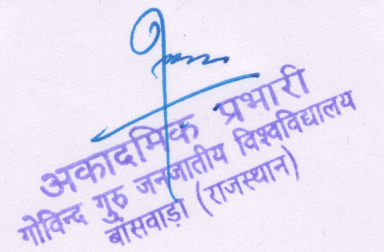 अकादमिक प्रभारी
गोविन्द गुरु जनजातीय विश्वविद्यालय
बाँसवाड़ा (राजस्थान)